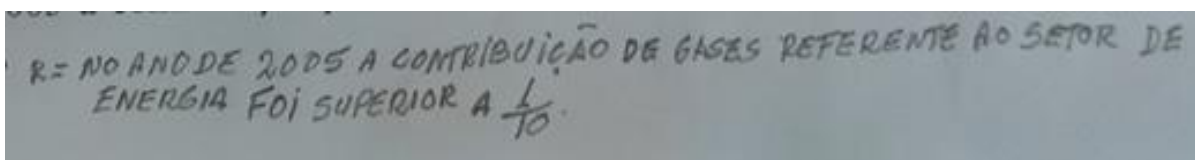 R= NO ANO DE 2005 A CONTRIBUIÇÃO DE GASES REFERENTE AO SETOR DE
ENERGIA FOI SUPERIOR A 1/10.